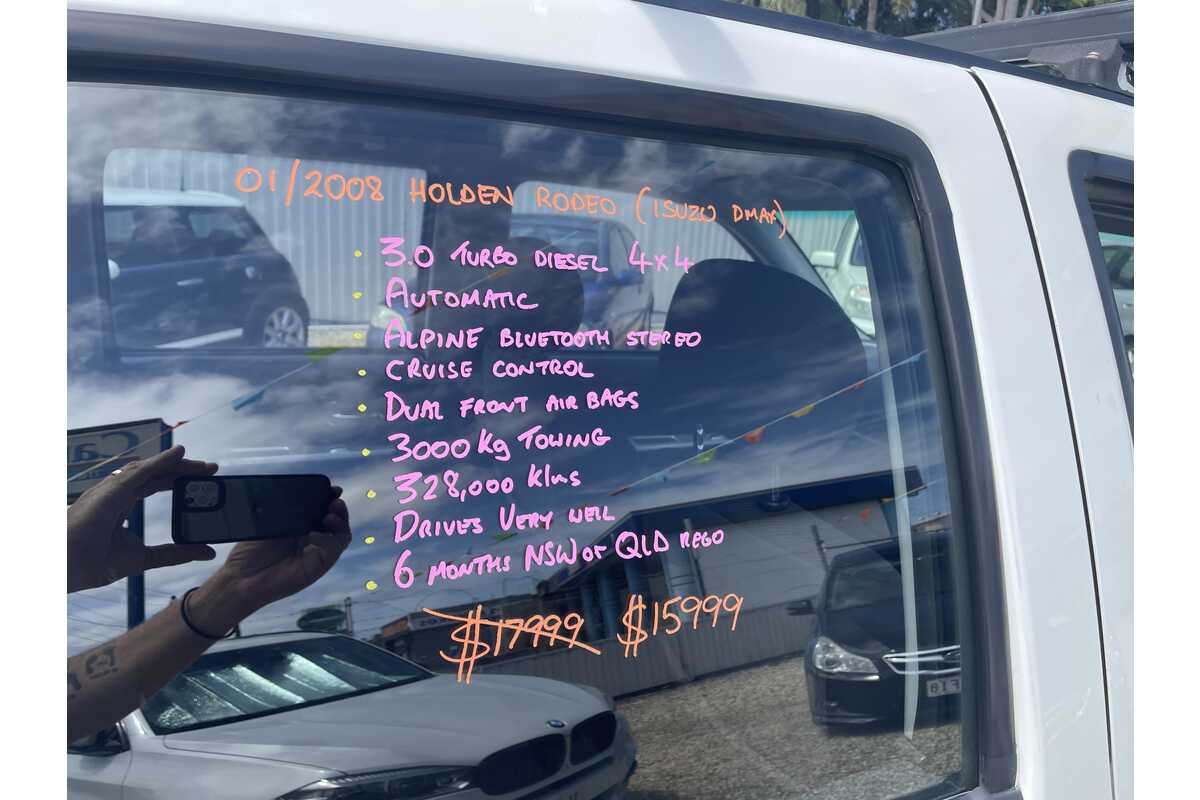 01/2008 HOLDEN RODEO (ISUZU DMAX)
• 3.0 TURBO DIESEL 4x4
• AUTOMATIC
• ALPINE BLUETOOTH STEREO
• CRUISE CONTROL
• DUAL FRONT AIR BAGS
• 3000 Kg TOWING
• 328,000 Klms
• DRIVES VERY WELL
• 6 MONTHS NSW OR QLD REGO
$17999 $15999